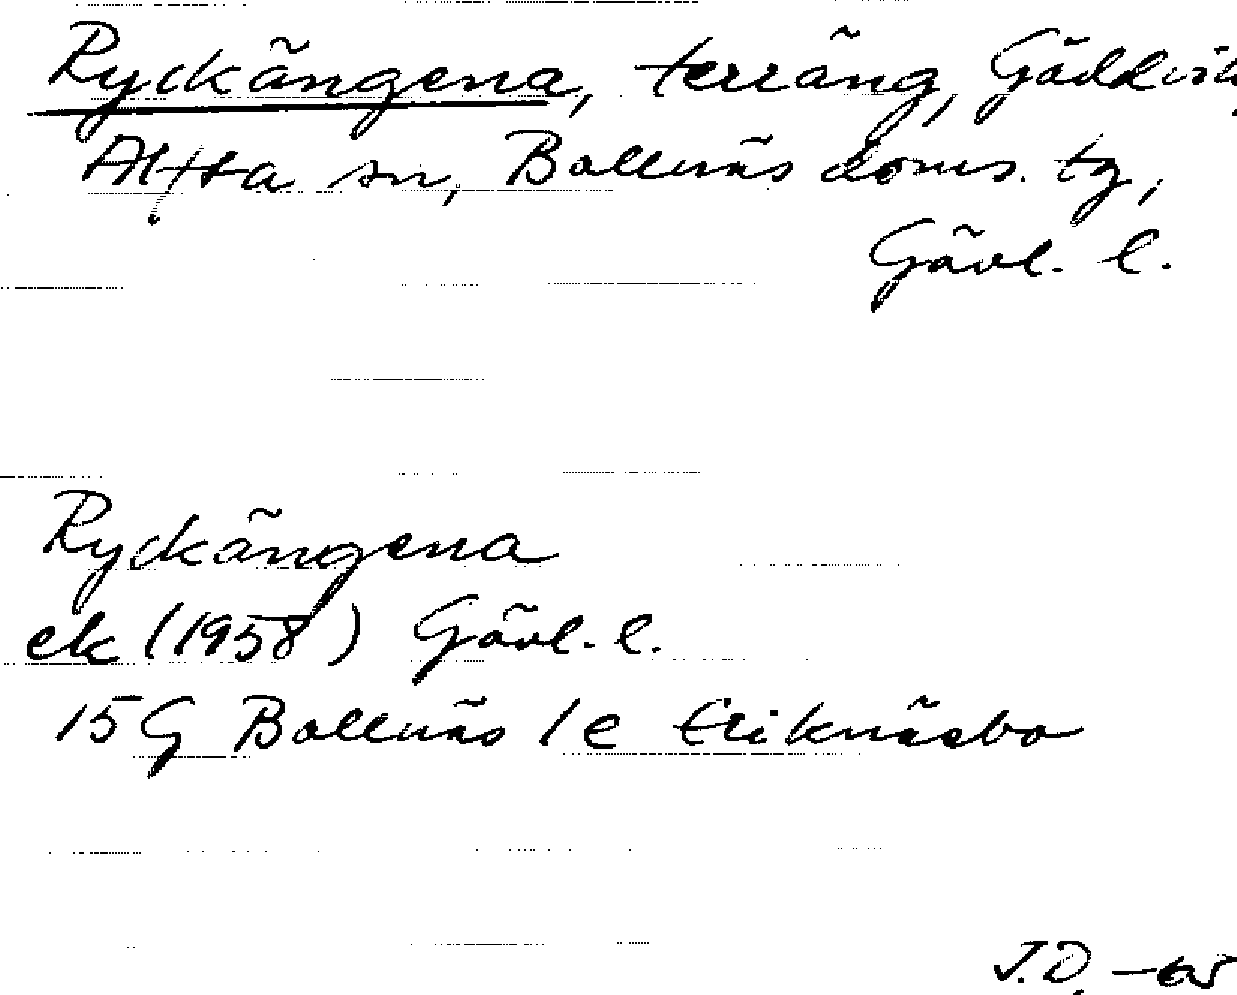 Ryckängena, terräng, Gäddvik,
Alfta sn, Bollnäs doms. tg,
Gävl. l.
Ryckängena
ek (1958) Gävl. l.
15G Bollnäs 1e Eriknäsbo
J.D. -65